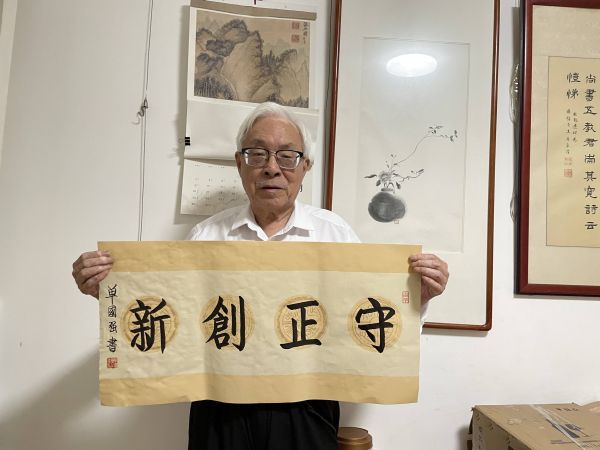 守正創新
单國强書
尚書五教君尚其寬詩云
愷悌